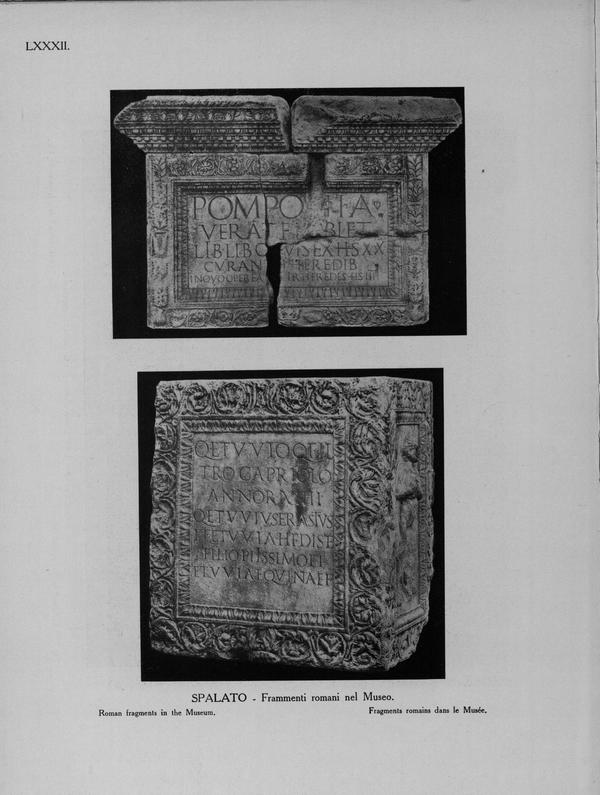 LXXXII.
POMPO IA
VERA ET
LIB LIBO VIS EX HS XX
CVRAN HEREDIB
INOVO OPERE HEREDES HS
Q ETVVIO Q FIL
TRO CAPRIOLO
ANNORVM III
Q ETVVIVS ERASTVS
ET ETVVIA HEDISTE
FILIO PIISSIMO ET
ETVVIAE QVINAE F
SPALATO - Frammenti romani nel Museo.
Roman fragments in the Museum. Fragments romains dans le Musée.